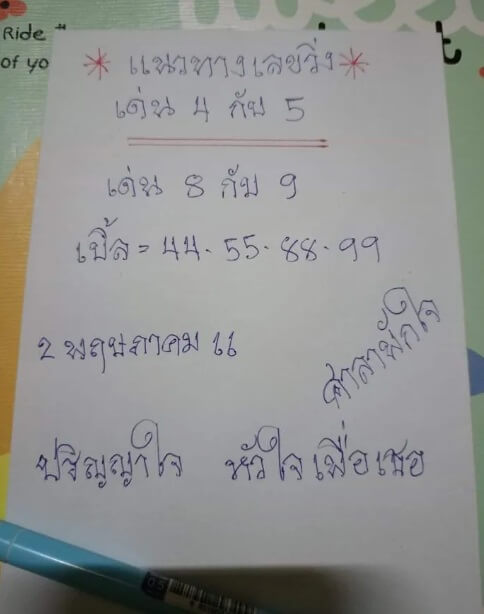 Ride
of yo
* แนวทางเลขวิ่ง *
เด่น 4 กับ 5
เด่น 8 กับ 9
เบิ้ล = 44 - 55 - 88 - 99
2 พฤษภาคม 66
ศาลาพักใจ
ปริญญาใจ หัวใจเพื่อเธอ
0.5